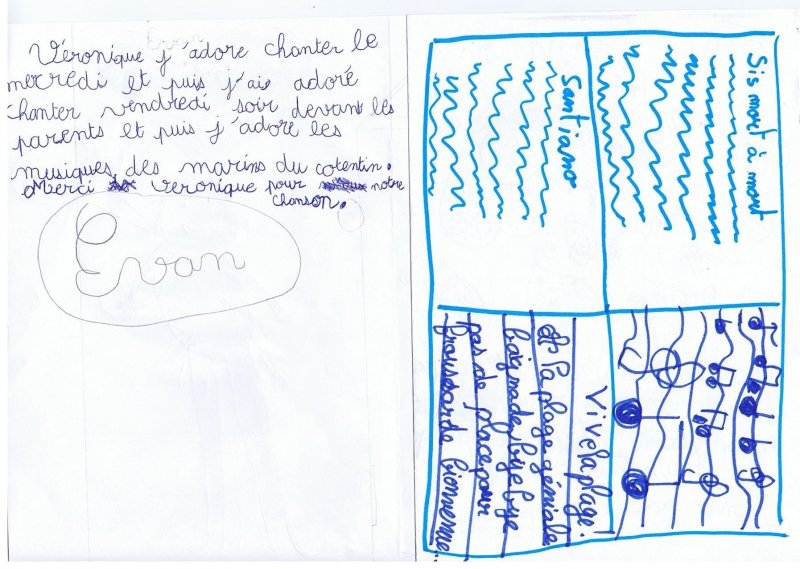 Véronique j'adore chanter le
mercredi et puis j'ai adoré
chanter vendredi soir devant les
parents et puis j'adore les
musiques des marins du cotentin.
Merci Veronique pour notre
chanson.
Evan
Sis mort à mort
Santiano
Vive la plage!
et la plage géniale
baignade bye bye
pas de place pour
bienvenue...